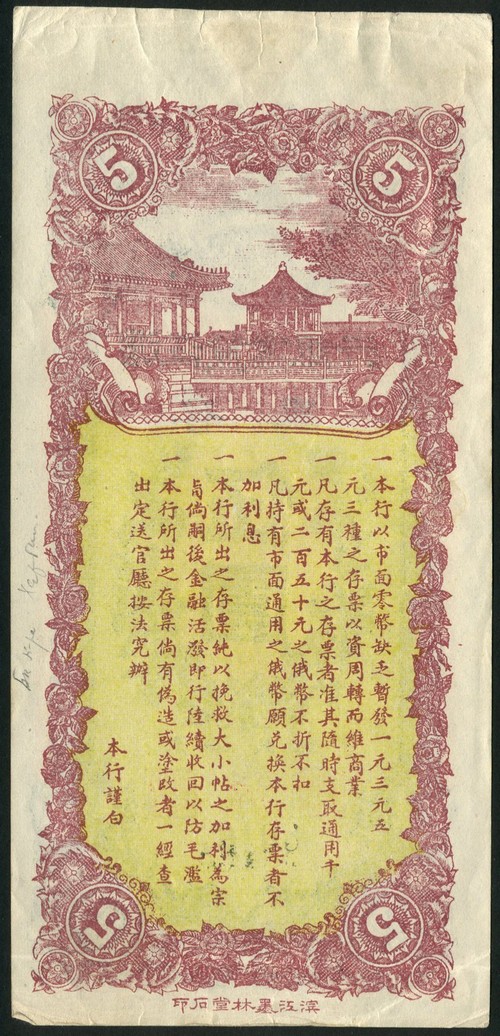 5
5
一本行以市面零幣缺乏暫發一元三元五
元三種之存票以資周轉而維商業
一凡存有本行之存票者准其隨時支取通用千
元或二百五十元之俄幣不折不扣
一凡持有市面通用之俄幣願兑換本行存票者不
加利息
一本行所出之存票純以挽救大小帖之加利為宗
旨倘嗣後金融活潑即行陸續收回以防毛濫
一本行所出之存票倘有偽造或塗改者一經查
出定送官廳按法究辦
本行謹白
5
5
滨江墨林堂石印